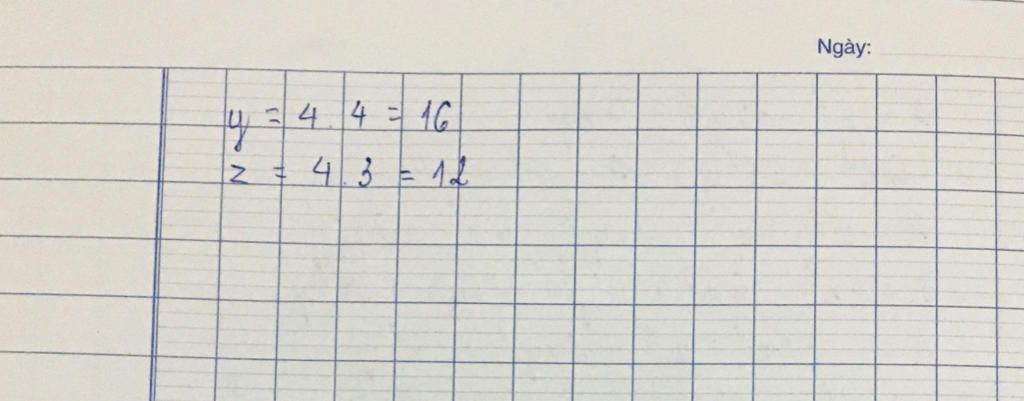 Ngày:
y = 4.4 = 16
z = 4.3 = 12